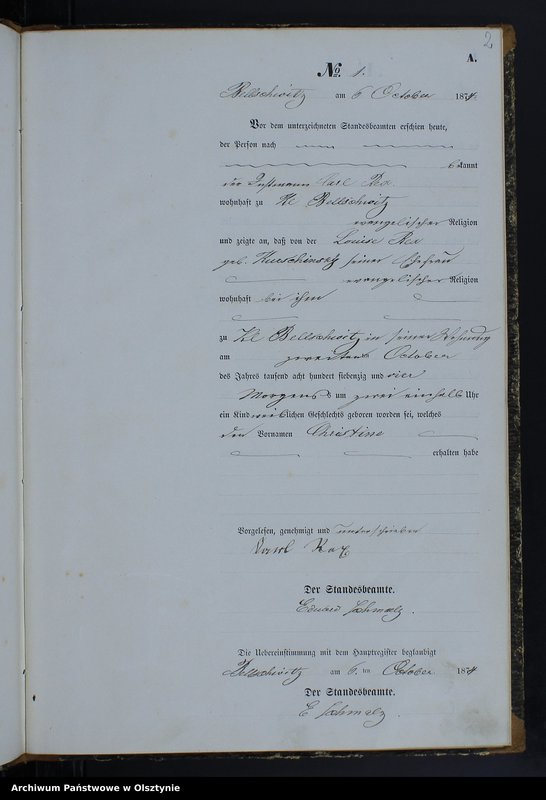 2
A.
No. 1.
Bellschwitz am 6 October 1874.
Vor dem unterzeichneten Standesbeamten erschien heute,
der Person nach
bekannt
der Instmann Carl Rex
wohnhaft zu Kl Bellschwitz
evangelischer Religion
und zeigte an, daß von der Louise Rex
geb. seiner Ehefrau
evangelischer Religion
wohnhaft bei ihm
zu Kl Bellschwitz in seiner Wohnung
am zweiten October
des Jahres tausend acht hundert siebenzig und vier
Morgens um zwei einhalb Uhr
ein Kind weiblichen Geschlechts geboren worden sei, welches
den Vornamen Christine
erhalten habe
Vorgelesen, genehmigt und unterschrieben
Carl Rex
Der Standesbeamte.
Schmalz.
Die Uebereinstimmung mit dem Hauptregister beglaubigt
Bellschwitz am 6. ten October 1874
Der Standesbeamte.
E Schmalz.
Archiwum Państwowe w Olsztynie